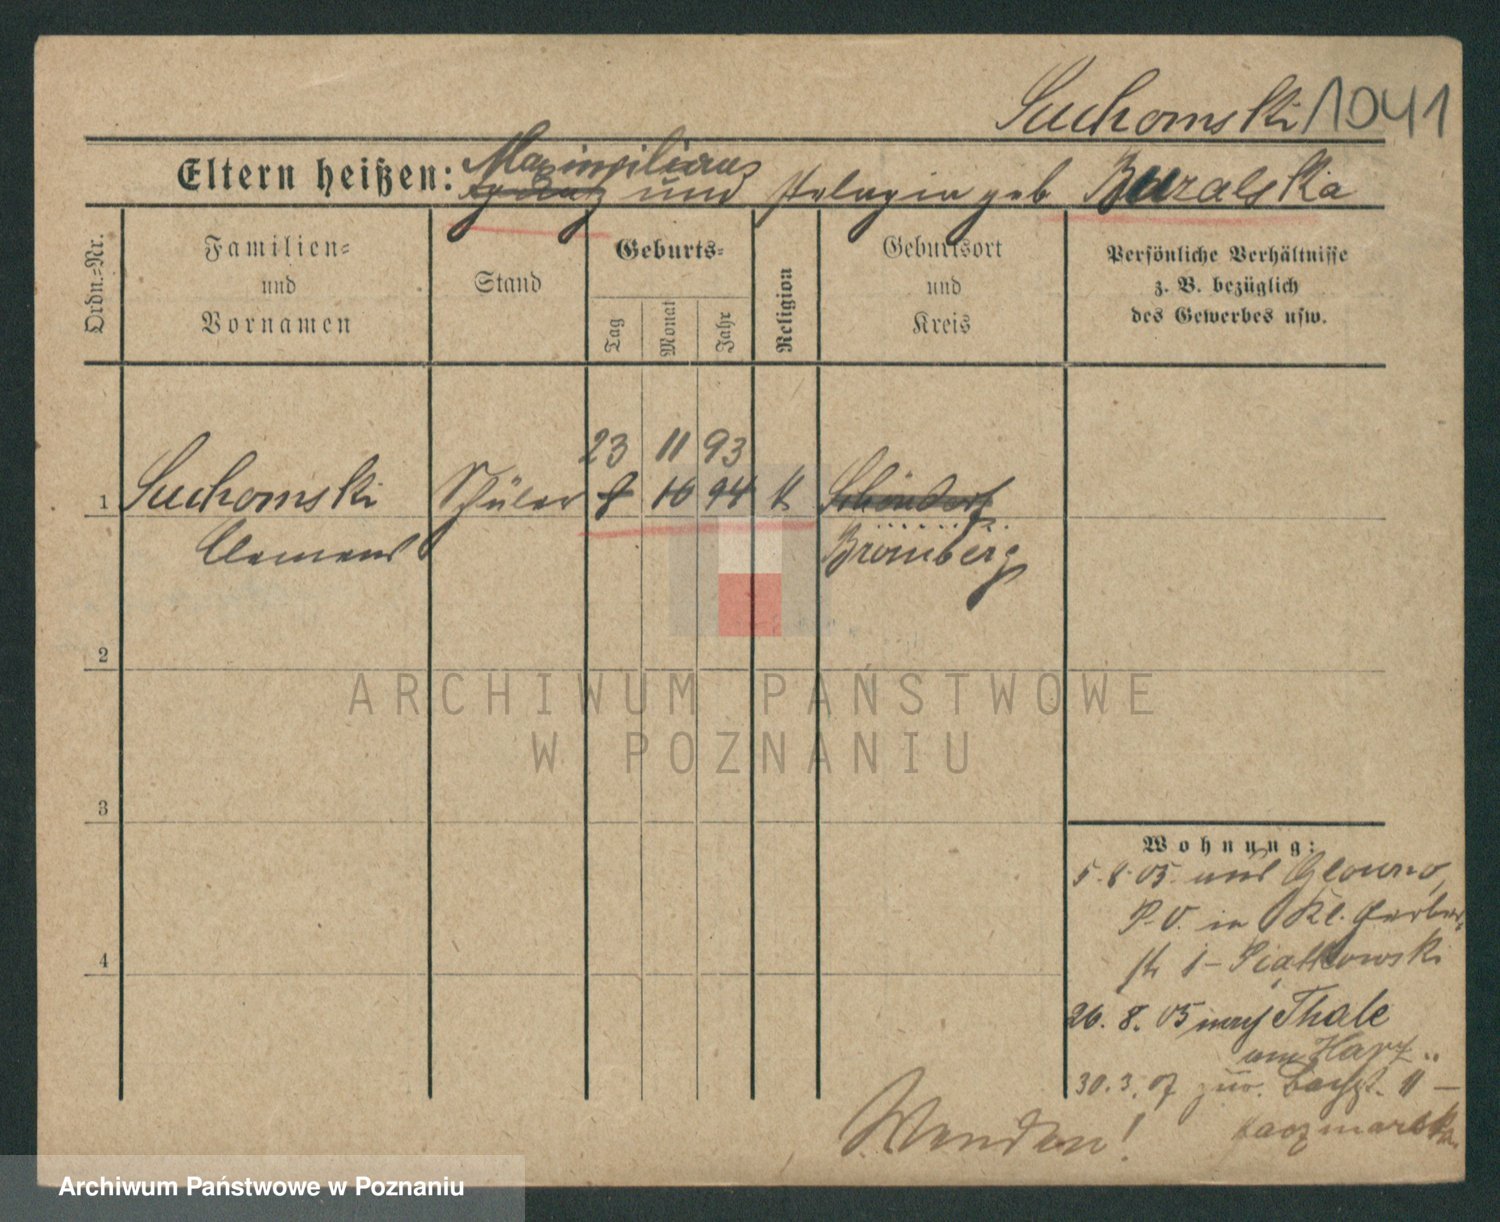 Suchomski 1041
Maximilians
Eltern heißen: und Pelagia geb Buralska
Ordn.-Nr.
Familien-
und
Vornamen
Stand
Geburts-
Tag
Monat
Jahr
Religion
Geburtsort
und
Kreis
Persönliche Verhältnisse
z. B. bezüglich
des Gewerbes usw.
23 11 93
1 Suchomski Schüler 8 10 94 k Schöndorf
Clemens Bromberg
2
3
4
Wohnung:
5.8.05. aus Glowno,
P.O. in Kl. Gerber-
str 1 - Piatkowski
26.8.05 nach Thale
am Harz
30.3.07 zur. 11 -
Kaczmarek
Wenden!
ARCHIWUM PAŃSTWOWE
W POZNANIU
Archiwum Państwowe w Poznaniu